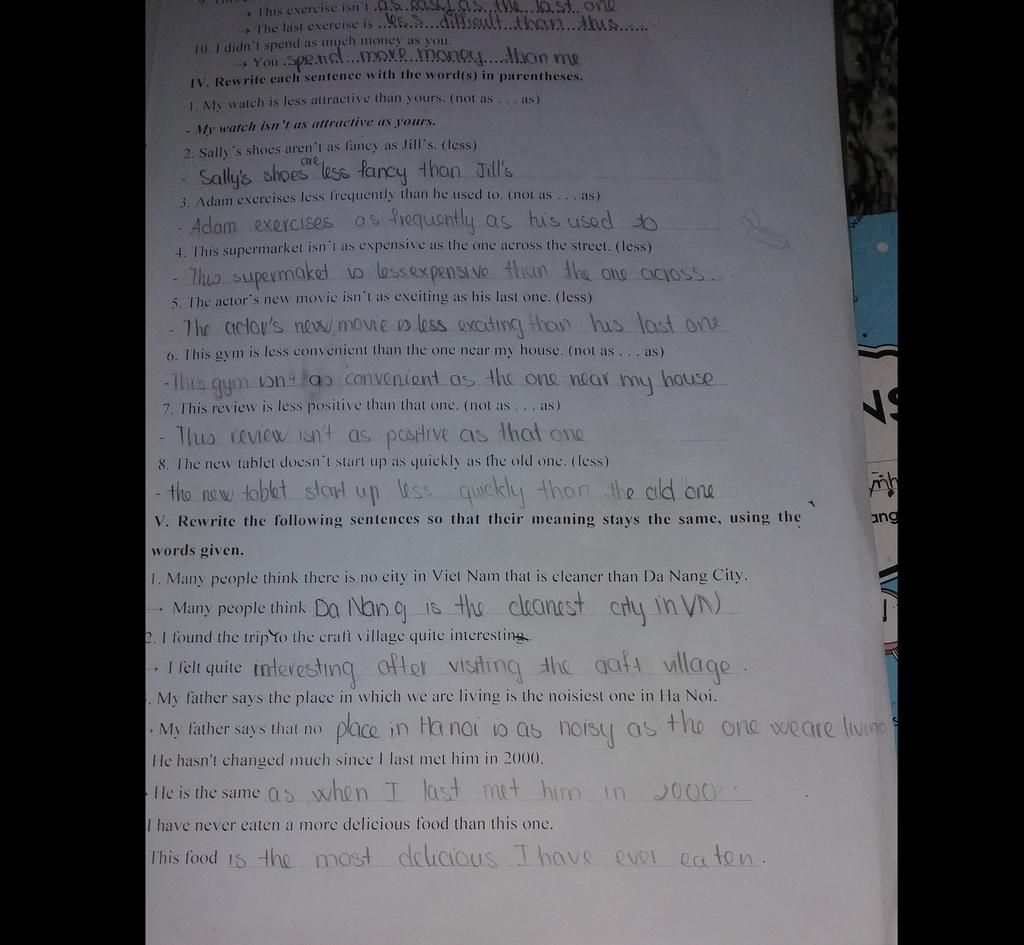 → This exercise isn't as easy as the last one
→ The last exercise is less difficult than this
10. I didn't spend as much money as you.
→ You spend more money than me
IV. Rewrite each sentence with the word(s) in parentheses.
1. My watch is less attractive than yours. (not as . . . as)
- My watch isn't as attractive as yours.
2. Sally's shoes aren't as fancy as Jill's. (less)
- Sally's shoes are less fancy than Jill's
3. Adam exercises less frequently than he used to. (not as . . . as)
- Adam exercises as frequently as his used to
4. This supermarket isn't as expensive as the one across the street. (less)
- This supermaket is less expensive than the one across.
5. The actor's new movie isn't as exciting as his last one. (less)
- The actor's new movie is less exciting than his last one
6. This gym is less convenient than the one near my house. (not as . . . as)
- This gym isn't as convenient as the one near my house
7. This review is less positive than that one. (not as . . . as)
- This review isn't as positive as that one
8. The new tablet doesn't start up as quickly as the old one. (less)
- the new tablet start up less quickly than the old one
V. Rewrite the following sentences so that their meaning stays the same, using the
words given.
1. Many people think there is no city in Viet Nam that is cleaner than Da Nang City.
→ Many people think Da Nang is the cleanest city in VN
2. I found the trip to the craft village quite interesting
→ I felt quite interesting after visiting the craft village.
. My father says the place in which we are living is the noisiest one in Ha Noi.
My father says that no place in Ha noi is as noisy as the one we are living
He hasn't changed much since I last met him in 2000.
He is the same as when I last met him in 2000
I have never eaten a more delicious food than this one.
This food is the most delicious I have ever eaten.
VS
ang